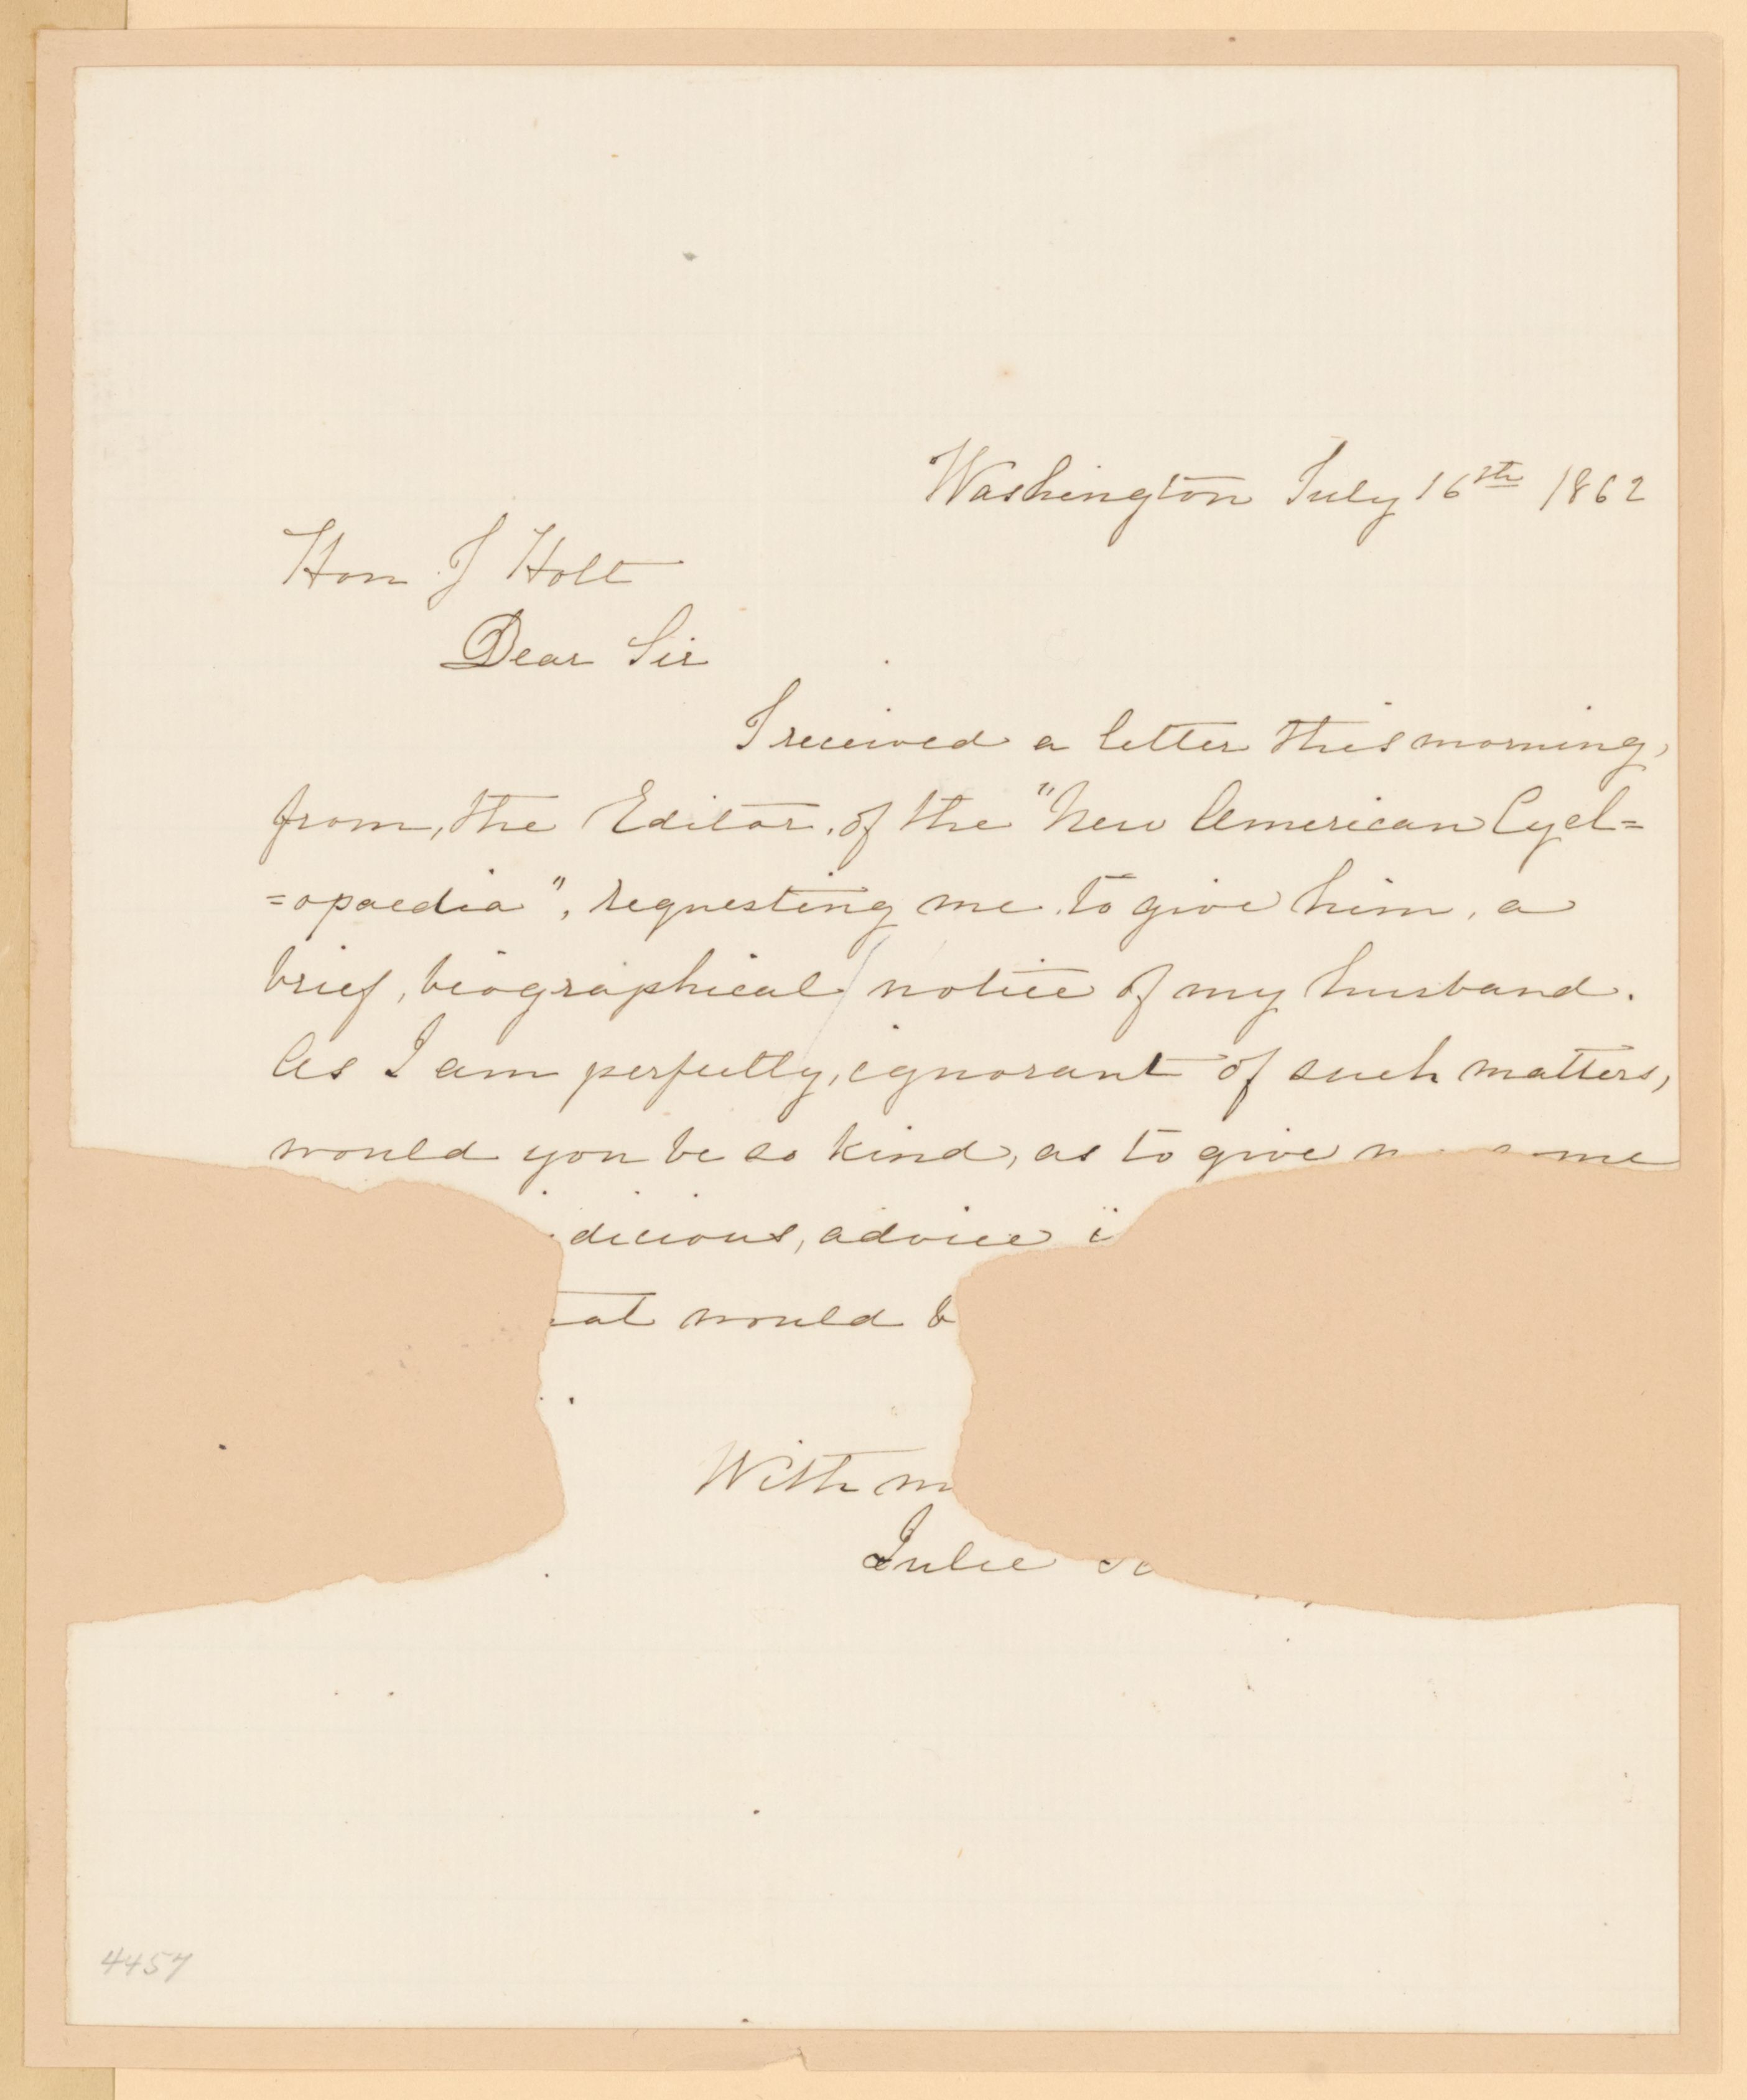 Washington July 16th 1862
Hon J Holt
Dear Sir
I received a letter this morning,
from, the Editor, of the "New American Cycl=
=opaedia", requesting me, to give him, a
brief, biographical notice of my husband.
As I am perfectly, ignorant of such matters,
would you be so kind, as to give
dicious, advice
would
With
Julie
4457